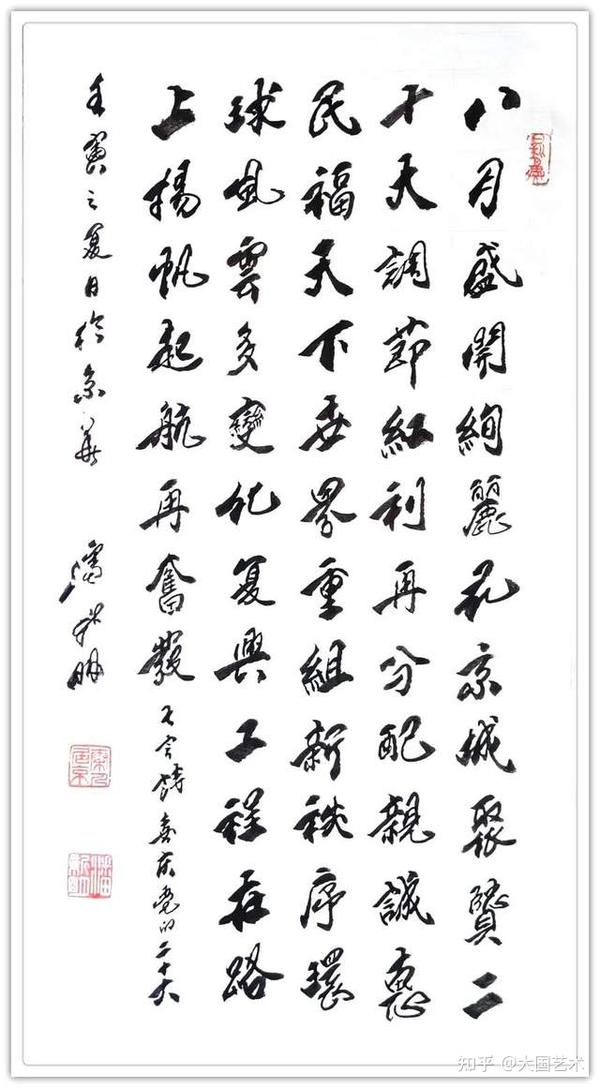 八月盛開絢麗花京城聚賢二
十天調節紅利再分配親誠惠
民福天下世界重組新秩序環
球風雲多變化复興工程在路
上揚帆起航再奮發 七言詩喜庆党的二十大
壬寅之夏日於京華 潘
知乎 @大国艺术